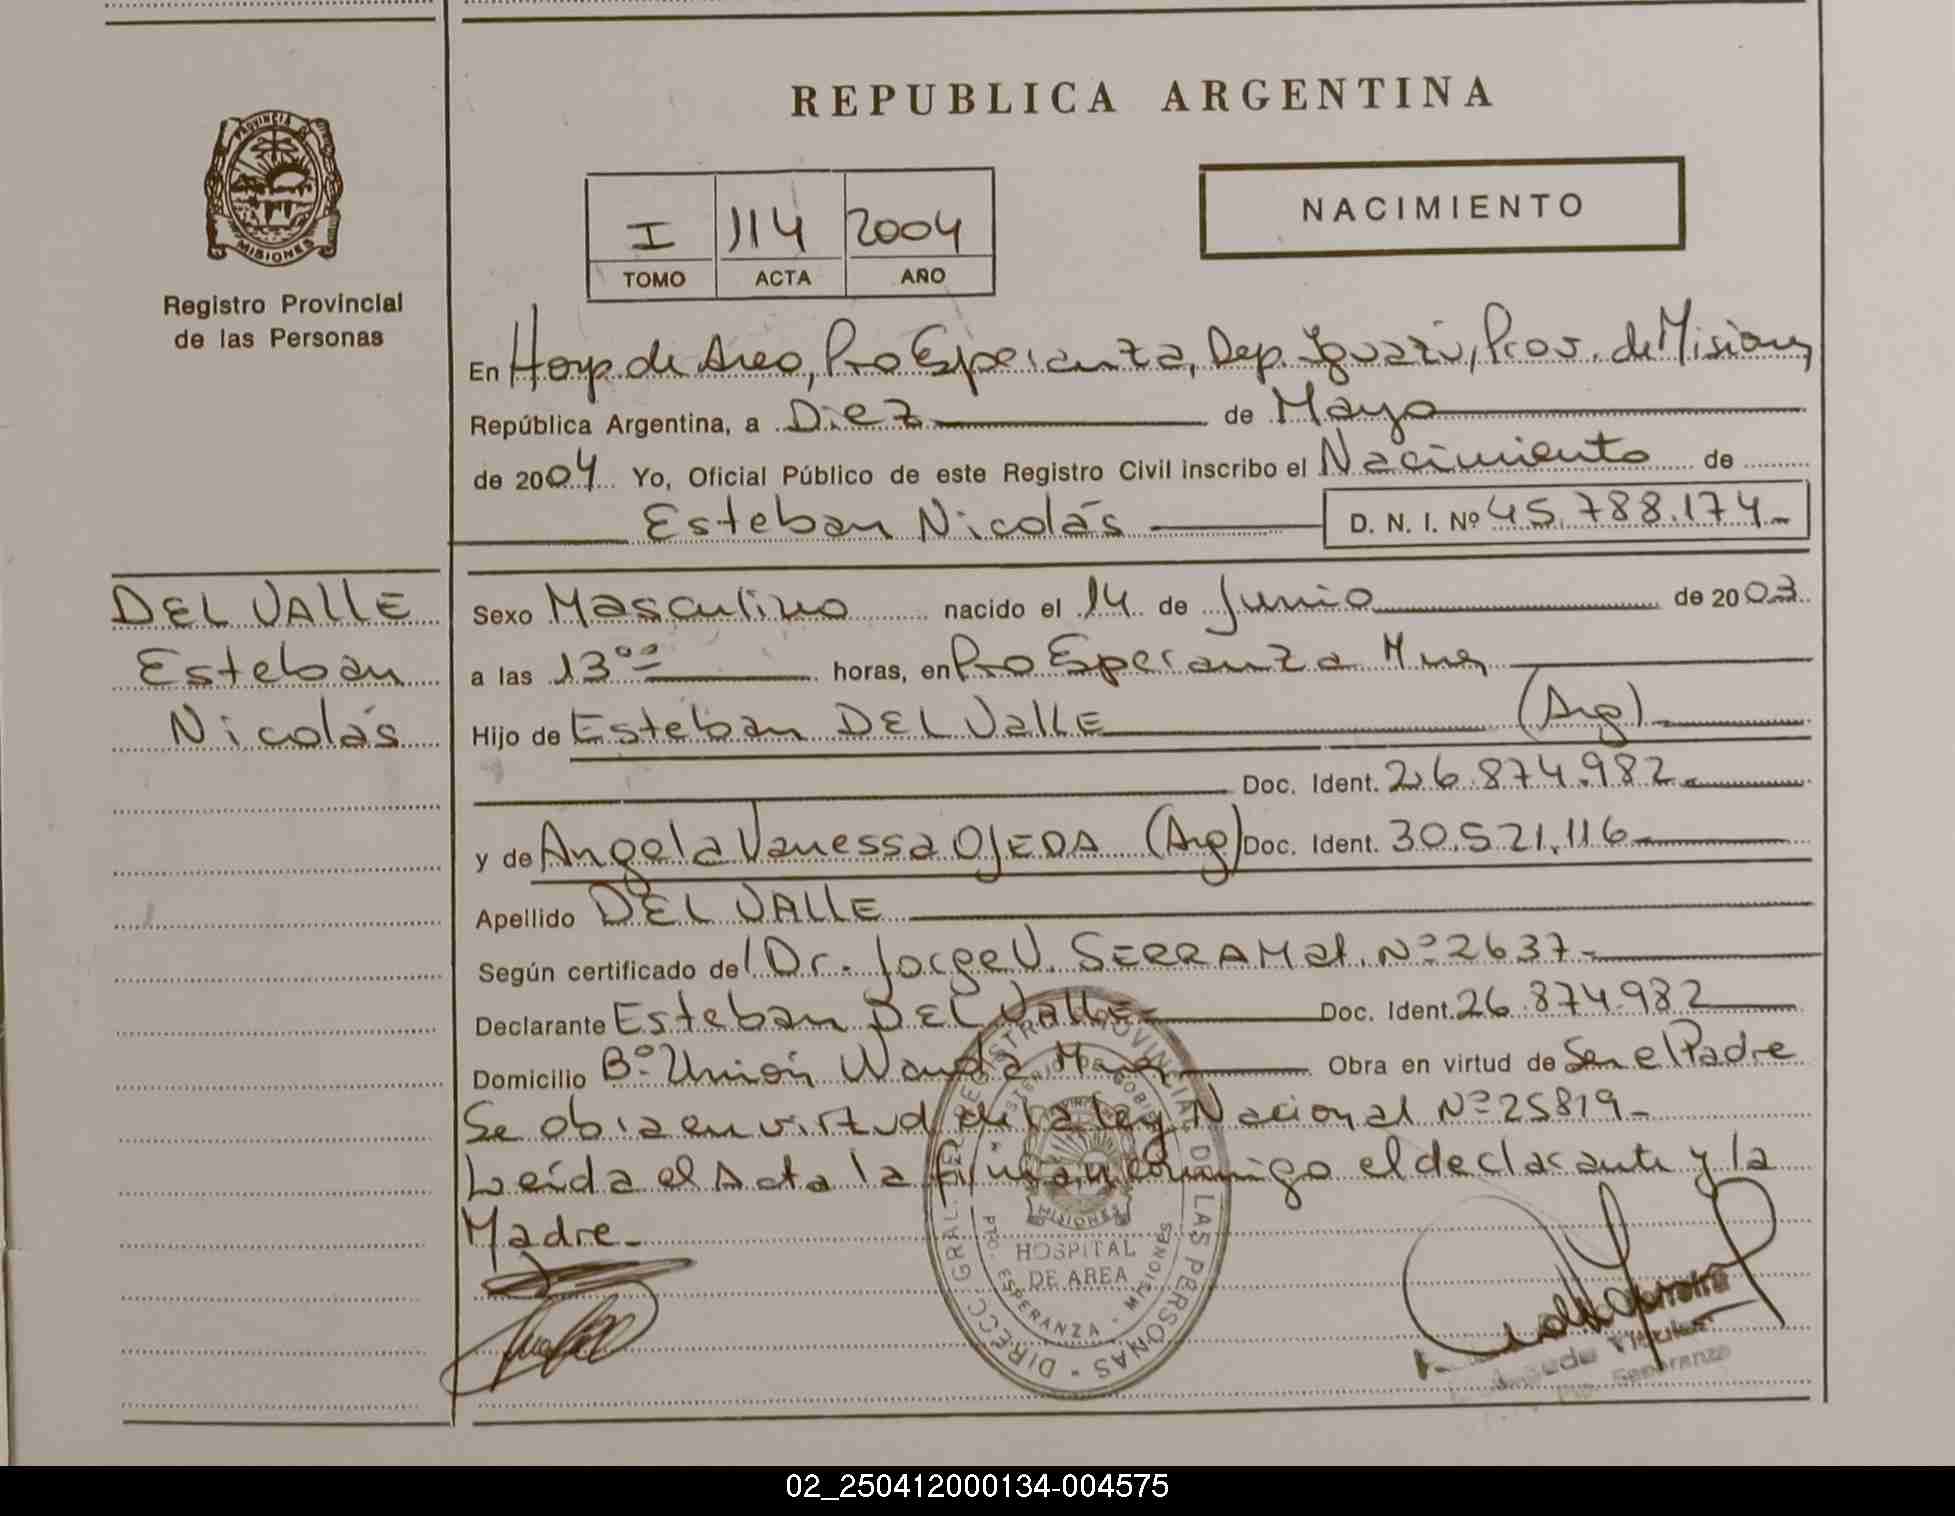 REPUBLICA ARGENTINA
PROVINCIA DE
MISIONES
Registro Provincial
de las Personas
I 114 2004
TOMO ACTA AÑO
NACIMIENTO
En Hosp de Area, Pto Esperanza, Dep. Iguazú, Prov. de Misiones
República Argentina, a Diez de Mayo
de 2004 Yo, Oficial Público de este Registro Civil inscribo el Nacimiento de
Esteban Nicolás D. N. I. Nº 45.788.174
DEL VALLE
Esteban
Nicolás
Sexo Masculino nacido el 14 de Junio de 2003
a las 13ºº horas, en Pto Esperanza Mnes
Hijo de Esteban DEL VallE (Arg)
Doc. Ident. 26.874.982
y de Angela Vanessa OJEDA (Arg) Doc. Ident. 30.521.116
Apellido DEL VALLE
Según certificado del Dr. Jorge V. SERRA Mat. Nº 2637
Declarante Esteban DEL VallE Doc. Ident. 26.874.982
Domicilio Bº Unión Wanda Mnes Obra en virtud de Ser el Padre
Se obra en virtud de la ley Nacional Nº 25819
Leída el Acta la firman conmigo el declarante y la
Madre
DIRECC. GRAL. DEL REGISTRO PROVINCIAL DE LAS PERSONAS
MINISTERIO DE GOBIERNO
MISIONES
HOSPITAL
DE AREA
PTO. ESPERANZA - MISIONES
Titular
Pto. Esperanza
02_250412000134-004575